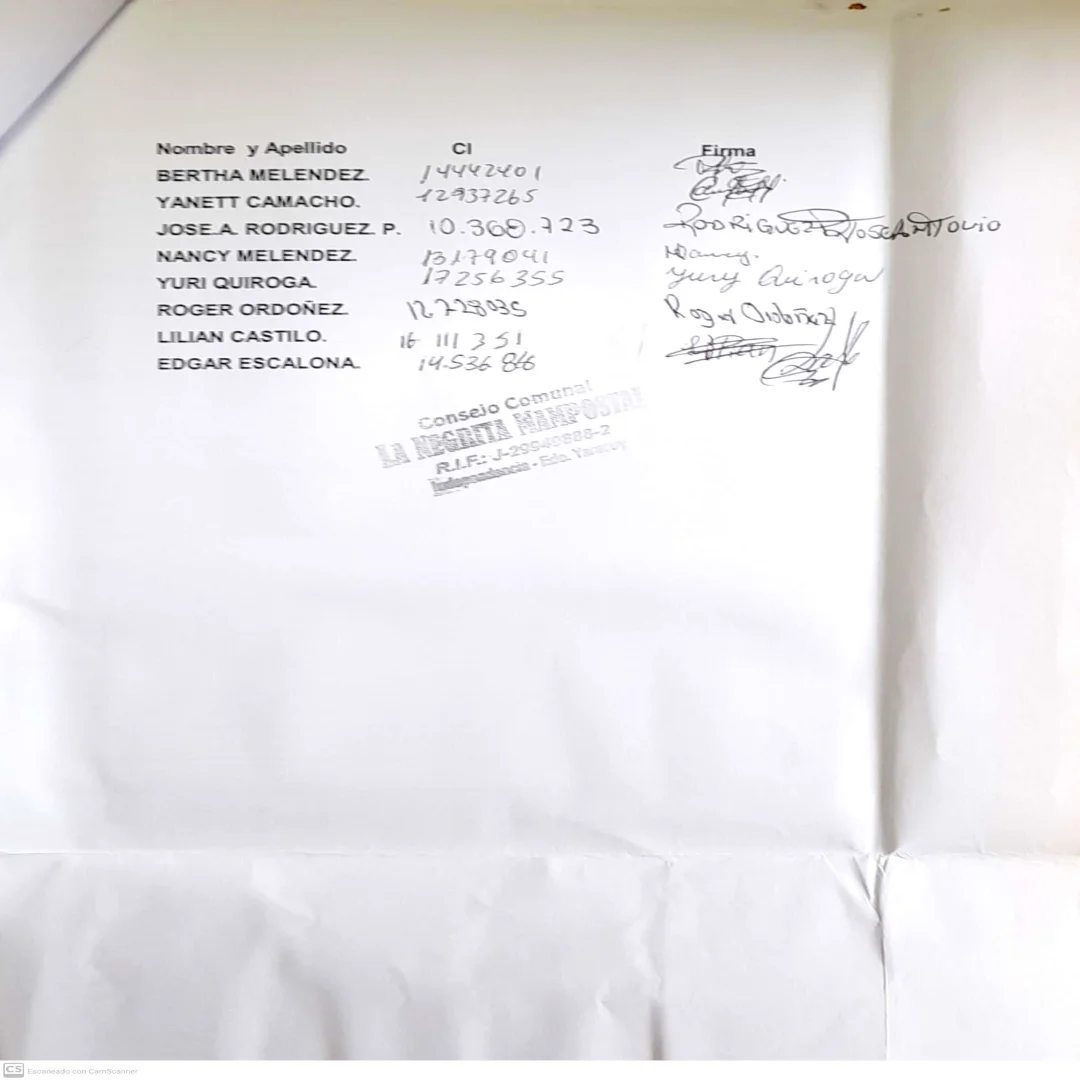 Nombre y Apellido CI Firma
BERTHA MELENDEZ. 14442401
YANETT CAMACHO. 12937265
JOSE.A. RODRIGUEZ. P. 10.368.723 RODRIGUEZ P JOSE ANTONIO
NANCY MELENDEZ. 13179041 Nancy.
YURI QUIROGA. 17256355 Yury Quiroga
ROGER ORDOÑEZ. 12.728035 Roger Ordoñez
LILIAN CASTILO. 16 111 351
EDGAR ESCALONA. 14.536
Consejo Comunal
LA NEGRITA MAMPOSTAL
R.I.F.: J-29940888-2
Independencia - Edo. Yaracuy
CS Escaneado con CamScanner